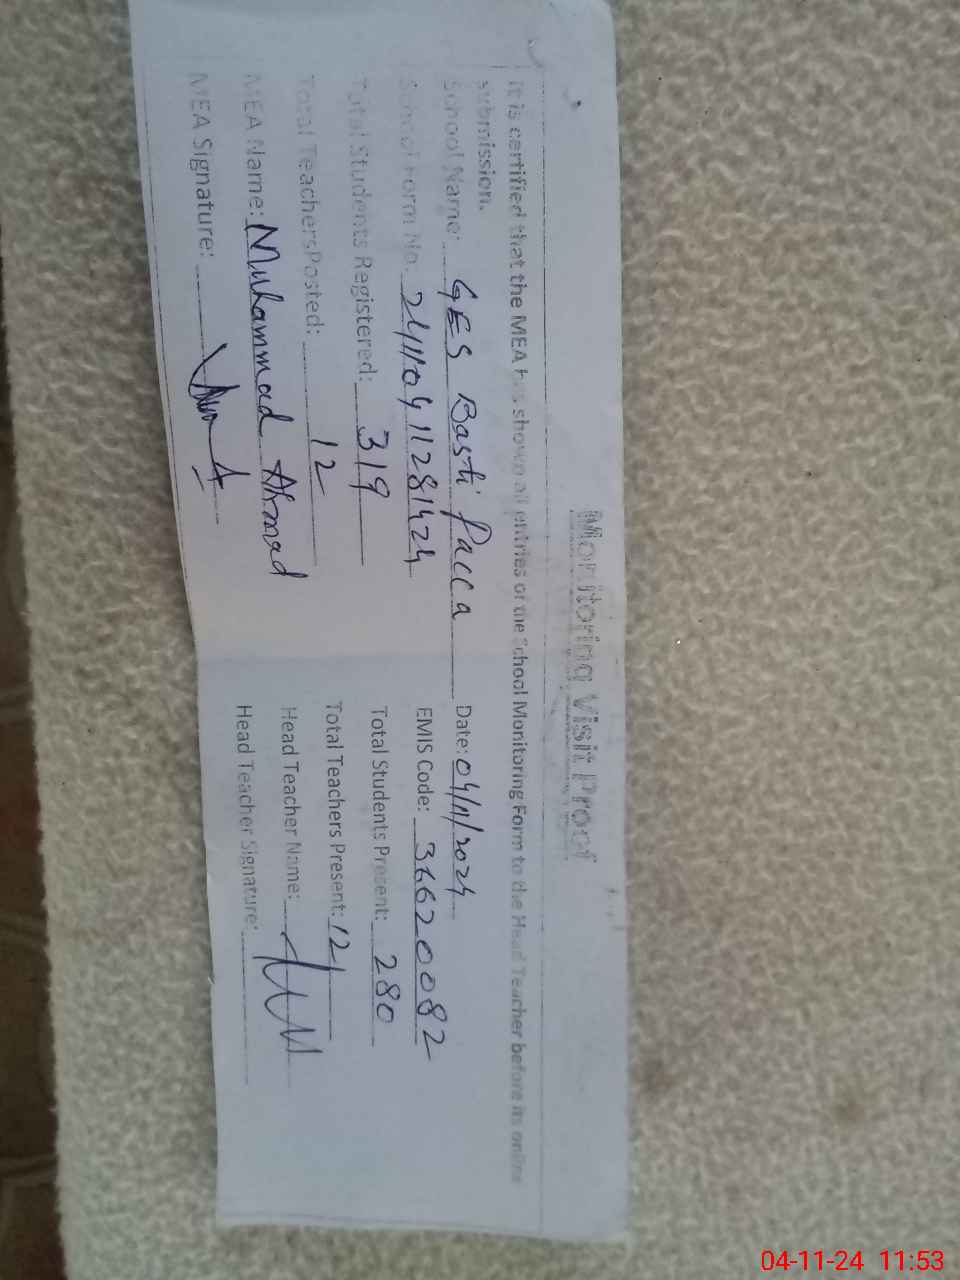 Monitoring Visit Proof
It is certified that the MEA has shown all entries of the School Monitoring Form to the Head Teacher before its online
submission.
School Name: GES Basti Pacca Date: 04/11/2024
School Form No: 241110411281424 EMIS Code: 36620082
Total Students Registered: 319 Total Students Present: 280
Total Teachers Posted: 12 Total Teachers Present: 12
MEA Name: Muhammad Ahmad Head Teacher Name:
MEA Signature: Head Teacher Signature:
04-11-24 11:53